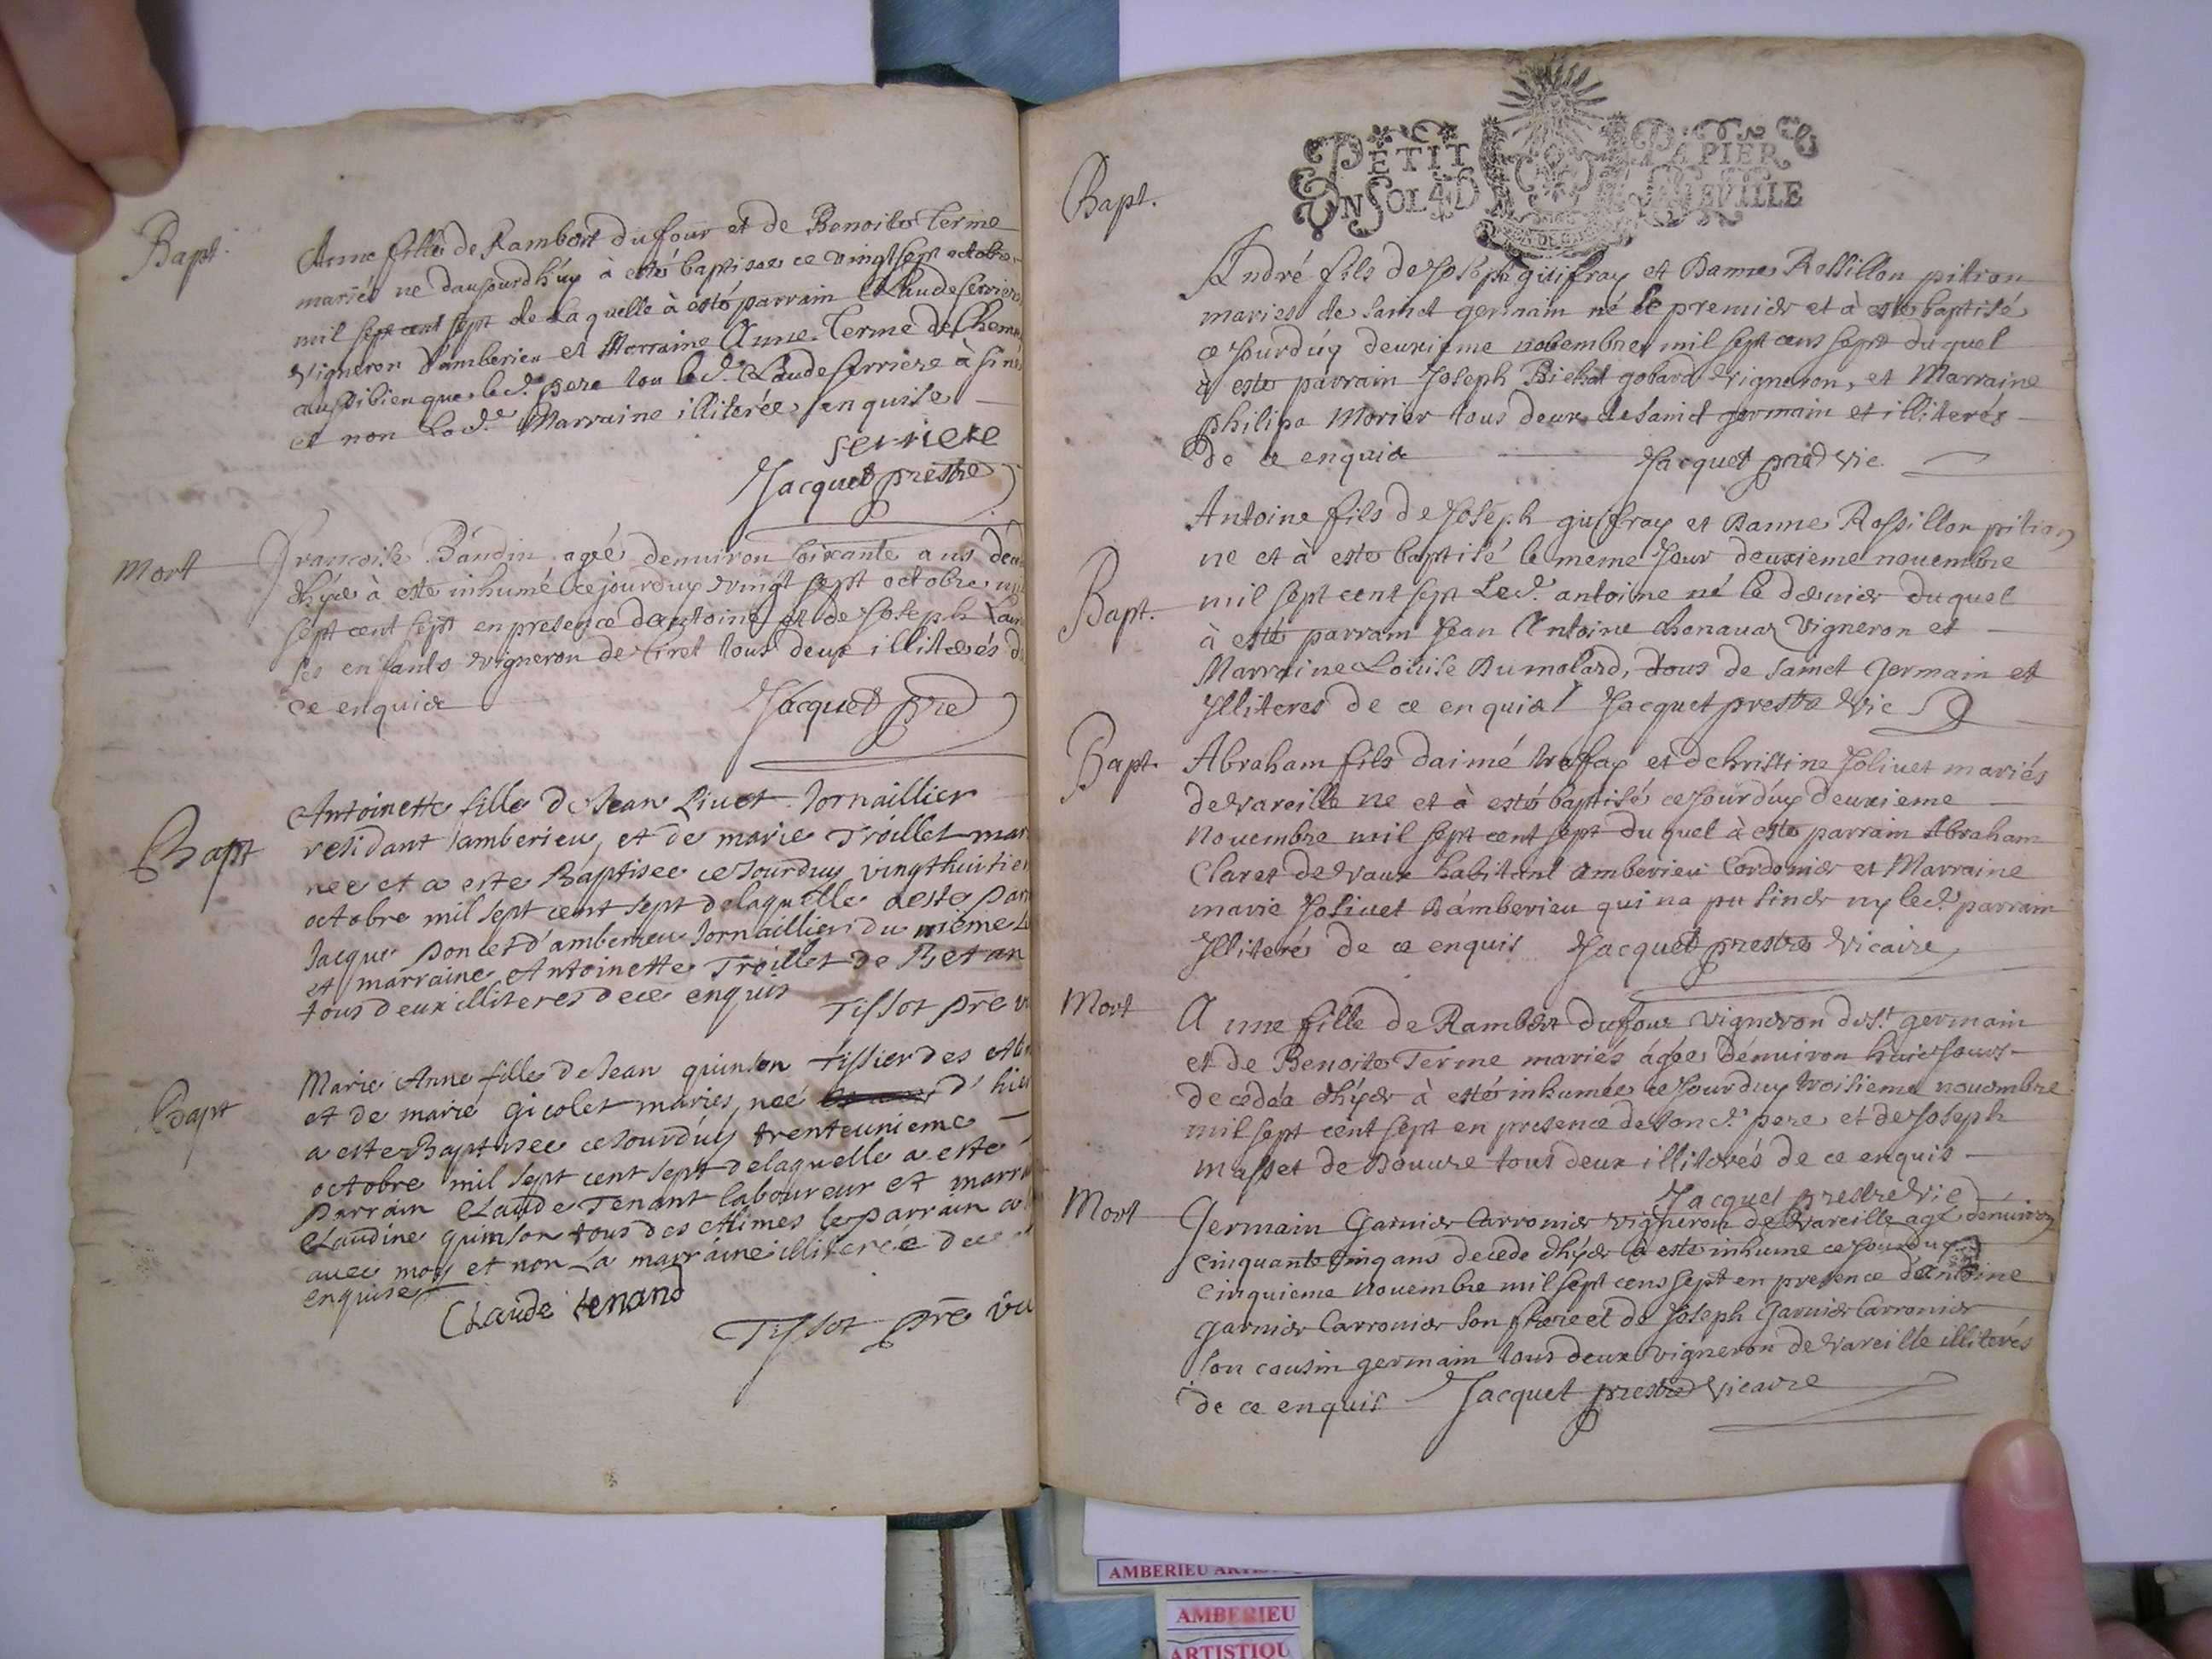 Bapt.
Anne fille de Rambert dufour et de Benoite Terme
mariés ne daujourdhuy à esté baptisee ce vingt sept octobre
mil sept cent sept de laquelle à esté parrain Claude serriere
vigneron d'amberieu et Marraine Anne Terme de
aussibien que led. pere lou led. Claude serriere à siné
et non lad.e Marraine illiterée enquise
serriere
Jacquet prestre
Mort
francoise Baudin agée denviron soixante ans
dhyer à esté inhumé ce jourduy vingt sept octobre mil
sept cent sept en presence dantoine et de Joseph
ses enfants vigneron de tiret tous deux illiterés de
ce enquis
Jacquet pre
Bapt
Antoinette fille de Jean Livet Jornaillier
residant amberieu, et de marie Troillet mar
nee et a este Baptisee ce Jourduy vingthuitie
octobre mil sept cent sept delaquelle a este par
Jacque poncet d'amberieu Jornaillier du mème
et marraine Antoinette Troillet de Bet
tous deux illiteres de ce enquis
Tissot pre vi
Bapt
Marie Anne fille de Jean quinson tissier des
et de marie gicolet maries, neé d'hier
a este Baptisee ce Jourduy trenteunieme
octobre mil sept cent sept delaquelle a este
parrain Claude Tenant laboureur et marr
Claudine quinson tous des Alimes le parrain a
avec moy et non La marraine illiterée de ce
enquise
Claude tenand
Tissot pre vic
PETIT PAPIER
UN SOL 4 D LA FEUILLE
Bapt.
André fils de Joseph guifray et Danne Rossillon pition
mariés de sainct germain né le premier et à esté baptisé
ce Jourduy deuxieme novembre mil sept cens sept duquel
à esté parrain Joseph Bichat gobard vigneron, et Marraine
philipa Morier tous deux de sainct germain et illiterés
de ce enquis Jacquet pre vic.
Bapt.
Antoine fils de Joseph guifray et Danne Rossillon pition
ne et à esté baptisé le meme Jour deuxieme novembre
mil sept cent sept Led. antoine né le dernier duquel
à esté parrain Jean Antoine chenavaz vigneron et
Marraine Louise Dumolard, tous de sainct Germain et
Illiteres de ce enquis Jacquet prestre vic
Bapt.
Abraham fils daimé trosfay et de christine Jolivet mariés
de vareille ne et à esté baptisé ce Jourduy deuxieme
novembre mil sept cent sept duquel à esté parrain Abraham
Claret de vaux habitant amberieu Cordonier et Marraine
marie Jolivet d'amberieu qui na pu siner ny led. parrain
Illiteré de ce enquis Jacquet prestre vicaire
Mort
Anne fille de Rambert dufour vigneron de st germain
et de Benoite Terme mariés ágée dénviron huict Jours
decedéa dhyer à esté inhumée ce Jourduy troisieme novembre
mil sept cent sept en presence de sond. pere et de Joseph
masset de Douvre tous deux illiterés de ce enquis
Jacquet prestre vic
Mort
Germain Garnier Carronier vigneron de vareille agé denviron
cinquante cinq ans decede dhyer à esté inhume ce Jourduy
cinquieme novembre mil sept cens sept en presence dantoine
garnier Carronier son frere et de Joseph Garnier Carronier
son cousin germain tous deux vigneron de vareille illiterés
de ce enquis Jacquet prestre vicaire
AMBERIEU
AMBERIEU
ARTISTIQU